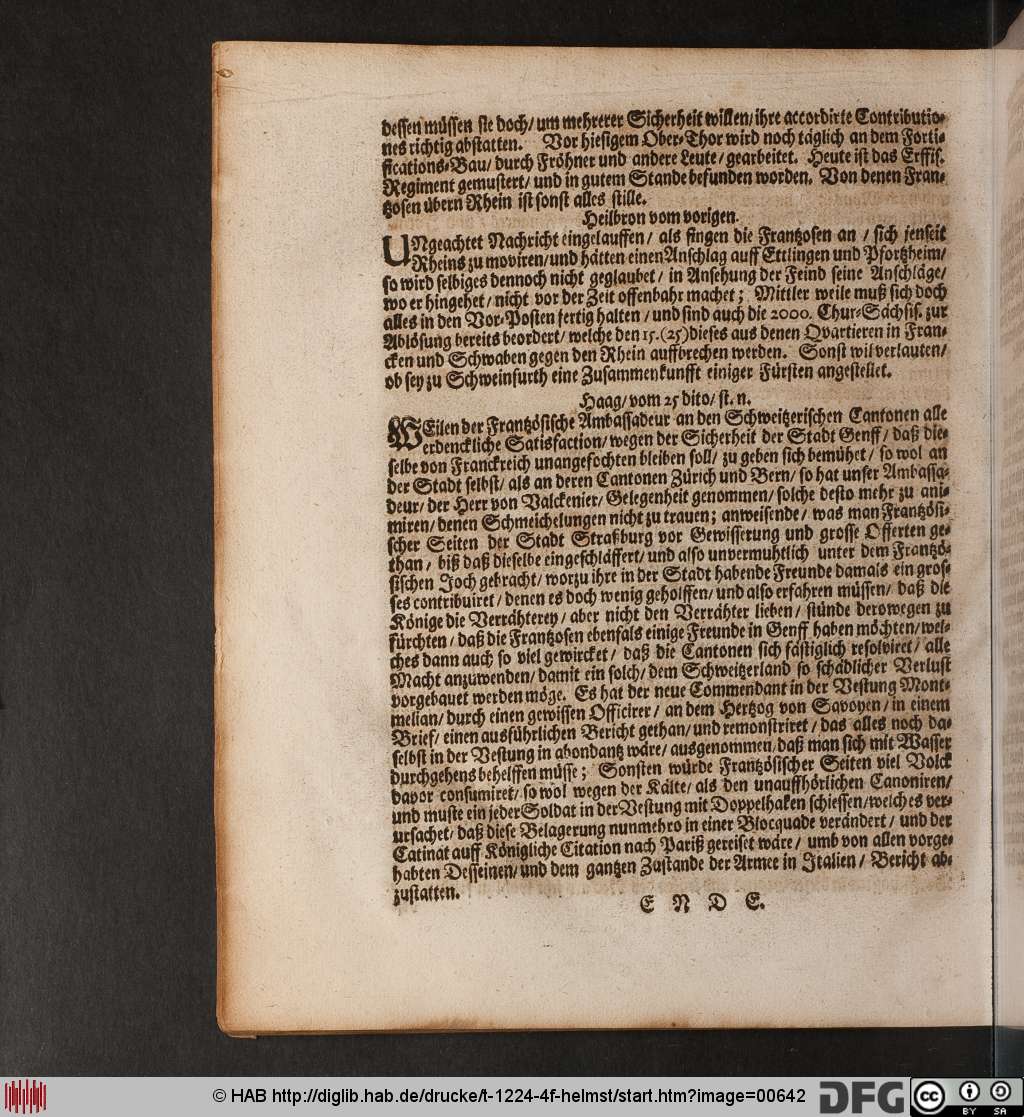 dessen müssen sie doch/ um mehrerer Sicherheit willen/ ihre accordirte Contributio-
nes richtig abstatten. Vor hiesigem Ober-Thor wird noch täglich an dem Forti-
fications-Bau/ durch Fröhner und andere Leute/ gearbeitet. Heute ist das Erffis.
Regiment gemustert/ und in gutem Stande befunden worden. Von denen Fran-
tzosen übern Rhein ist sonst alles stille.
Heilbron vom vorigen.
UNgeachtet Nachricht eingelauffen/ als fingen die Frantzosen an / sich jenseit
Rheins zu moviren/ und hätten einen Anschlag auff Ettlingen und Pfortzheim/
so wird selbiges dennoch nicht geglaubet/ in Ansehung der Feind seine Anschläge/
wo er hingehet/ nicht vor der Zeit offenbahr machet; Mittler weile muß sich doch
alles in den Vor-Posten fertig halten / und sind auch die 2000. Chur-Sächsis. zur
Ablösung bereits beordert/ welche den 15.(25) dieses aus denen Qvartieren in Fran-
cken und Schwaben gegen den Rhein auffbrechen werden. Sonst wil verlauten/
ob sey zu Schweinfurth eine Zusammenkunfft einiger Fürsten angestellet.
Haag/ vom 25 dito/ st. n.
WEilen der Frantzösische Ambassadeur an den Schweitzerischen Cantonen alle
erdenckliche Satisfaction/ wegen der Sicherheit der Stadt Genff/ daß die-
selbe von Franckreich unangefochten bleiben soll/ zu geben sich bemühet/ so wol an
der Stadt selbst/ als an deren Cantonen Zürich und Bern/ so hat unser Ambassa-
deur/ der Herr von Valckenier/ Gelegenheit genommen/ solche desto mehr zu ani-
miren/ denen Schmeichelungen nicht zu trauen; anweisende/ was man Frantzösi-
scher Seiten der Stadt Straßburg vor Gewisserung und grosse Offerten ge-
than/ biß daß dieselbe eingeschläffert/ und also unvermuhtlich unter dem Frantzö-
sischen Joch gebracht/ worzu ihre in der Stadt habende Freunde damals ein gros-
ses contribuiret/ denen es doch wenig geholffen/ und also erfahren müssen/ daß die
Könige die Verrähterey/ aber nicht den Verrähter lieben/ stünde derowegen zu
fürchten/ daß die Frantzosen ebenfals einige Freunde in Genff haben möchten/ wel-
ches dann auch so viel gewircket/ daß die Cantonen sich fästiglich resolviret/ alle
Macht anzuwenden/ damit ein solch/ dem Schweitzerland so schädlicher Verlust
vorgebauet werden möge. Es hat der neue Commendant in der Vestung Mont-
melian/ durch einen gewissen Officirer/ an dem Hertzog von Savoyen/ in einem
Brief/ einen ausführlichen Bericht gethan/ und remonstriret/ das alles noch da-
selbst in der Vestung in abondantz wäre/ ausgenommen/ daß man sich mit Wasser
durchgehens behelffen müsse; Sonsten würde Frantzösischer Seiten viel Volck
davor consumiret/ so wol wegen der Kälte/ als den unauffhörlichen Canoniren/
und muste ein jeder Soldat in der Vestung mit Doppelhaken schiessen/ welches ver-
ursachet/ daß diese Belagerung nunmehro in einer Blocquade verändert/ und der
Catinat auff Königliche Citation nach Pariß gereiset wäre/ umb von allen vorge-
habten Desseinen/ und dem gantzen Zustande der Armee in Italien/ Bericht ab-
zustatten.
E N D E.
© HAB http://diglib.hab.de/drucke/t-1224-4f-helmst/start.htm?image=00642
DFG
cc BY SA